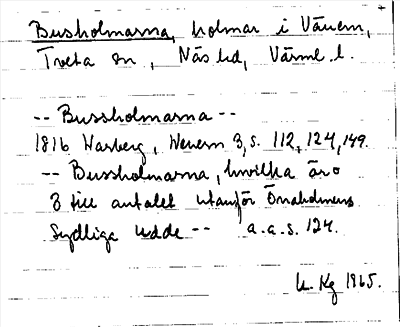 Busholmarna, holmar i Vänern,
Tveta sn, Näs hd, Värml. l.
-- Bussholmarna --
1816 Warberg, Wenern 3, s. 112, 124, 149.
-- Bussholmarna, hvilka äro
3 till antalet utanför Önaholmens
Sydliga udde -- a.a.s. 124.
Kg 1965.